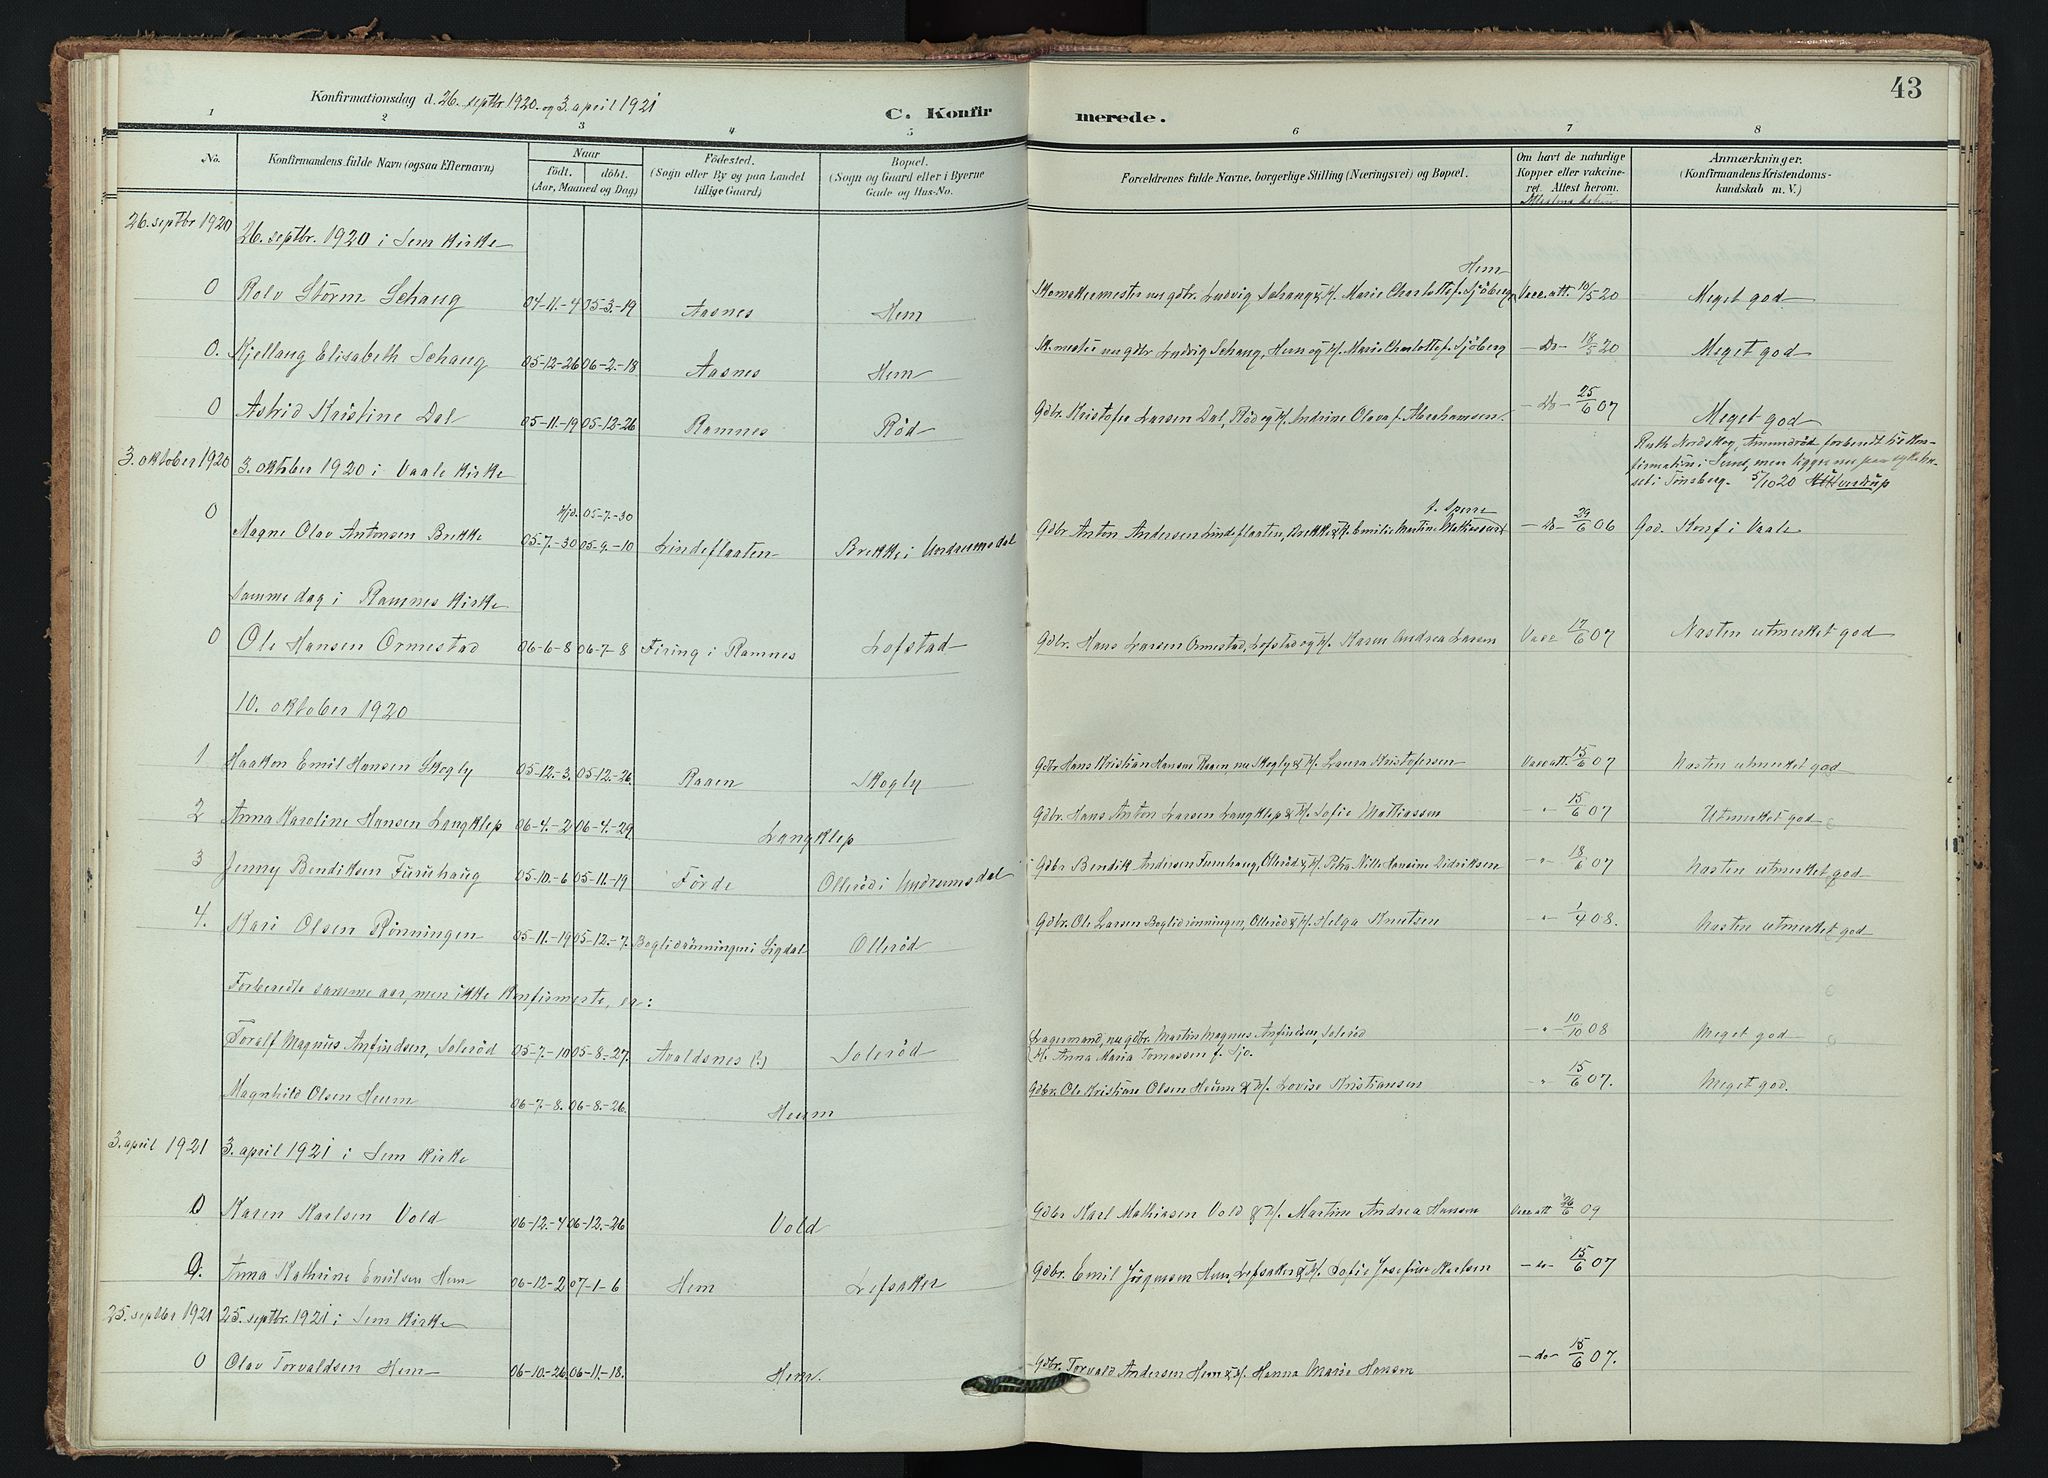 43
Konfirmationsdag d. 26. septbr. 1920. og 3. april 1921
C. Konfirmerede.
1 2 3 4 5 6 7 8
No. Konfirmandens fulde Navn (ogsaa Efternavn) Naar født. døbt. (Aar, Maaned og Dag) Fødested. (Sogn eller By og paa Landet tillige Gaard) Bopæl. (Sogn og Gaard eller i Byerne Gade og Hus-No. Forældrenes fulde Navne, borgerlige Stilling (Næringsvei) og Bopæl. Om havt de naturlige Kopper eller vakcineret. Attest herom. Anmærkninger. (Konfirmandens Kristendomskundskab m. V.)
26. septbr 1920 26. septbr. 1920 i Sem kirke
0 Rolv Storm Schaug 04-11-4 05-3-19 Aasnes Hem Skomakermester nu gdbr. Ludvig Schaug & H. Marie Charlotte f. Sjöberg Hem Vacc. att. 10/5 20 Meget god
0. Kjellaug Elisabeth Schaug 05-12-26 06-2-18 Aasnes Hem Sk.mester nu gdbr Ludvig Schaug, Hem og H. Marie Charlotte f. Sjöberg -Do- 18/5 20 Meget god
0 Astrid Kristine Dal 05-11-19 05-12-26 Ramnes Röd Gdbr. Kristofer Larsen Dal, Röd og H. Indrine Olava f. Abrahamsen. -Do- 25/6 07 Meget god
Ruth Nordskog, Amundröd forberedt til konfirmation i Sem, men ligger nu paa sykehuset i Tønsberg. 5/10 20
3. oktober 1920 3. oktober 1920 i Vaale kirke
0 Magne Olav Antonsen Brekke 05-7-30 Hjd. 05-7-30 05-9-10 Lindeflaaten Brekke i Undrumsdal Gdbr. Anton Andersen Lindeflaaten, Brekke & H. Emilie Martine Mathissen -Do- 29/6 06 God. Konf i Vaale
Samme dag i Ramnes kirke
0 Ole Hansen Ormestad 06-6-8 06-7-8 Firing i Ramnes Lofstad Gdbr. Hans Larsen Ormestad, Lofstad og H. Karen Andrea Larsen Vacc 17/6 07 Næsten utmerket god
10. oktober 1920
1 Haakon Emil Hansen Skogly 05-12-3. 05-12-26. Raaen Skogly Gdbr Hans Kristian Hansen Raaen, nu Skogly & H. Laura Kristofersen Vacc att. 15/6 07 Næsten utmerket god
2 Anna Karoline Hansen Langklep 06-4-2 06-4-29. Langklep Gdbr. Hans Anton Larsen Langklep & H. Sofie Mathiassen -"- 15/6 07 Utmerket god
3 Jenny Bendiksen Furuhaug 05-10-6 05-11-19 Förde Olleröd i Undrumsdal Gdbr Bendik Andersen Furuhaug, Olleröd & H. Petra Nille Hansine Didriksen -"- 18/6 07 Næsten utmerket god
4. Kari Olsen Rönningen 05-11-19 05-12-7. Boglidrönningen i Sigdal Olleröd Gdbr. Ole Larsen Boglidrönningen, Olleröd & H. Helga Knutsen -"- 1/4 08. Næsten utmerket god
Forberedte samme aar, men ikke konfirmerte, er:
Toralf Magnus Anfindsen, Soleröd 05-7-10 05-8-27. Avaldsnes (?) Soleröd Lagermand, nu gdbr. Martin Magnus Anfindsen, Soleröd H. Anna Maria Tomassen f. Sjo. -"- 10/10 08 Meget god
Magnhild Olsen Heum 06-7-8. 06-8-26. Heum Gdbr. Ole Kristian Olsen Heum & H. Lovise Kristiansen -"- 15/6 07. Meget god.
3. april 1921 3. april 1921 i Sem kirke
0 Karen Karlsen Vold 06-12-4 06-12-26 Vold Gdbr Karl Mathiasen Vold & H. Martine Andrea Hansen Vacc att 26/6 09
0. Anna Kathrine Emilsen Hem 06-12-2 07-1-6 Hem Lefsaker Gdbr. Emil Jörgensen Hem, Lefsaker & H. Sofie Josefine Karlsen -"- 15/6 07
25. septbr 1921 25. septbr. 1921 i Sem kirke
0 Olav Torvaldsen Hem 06-10-26 06-11-18. Hem. Gdbr. Torvald Andersen Hem & H. Hanna Marie Hansen -do- 15/6 07.